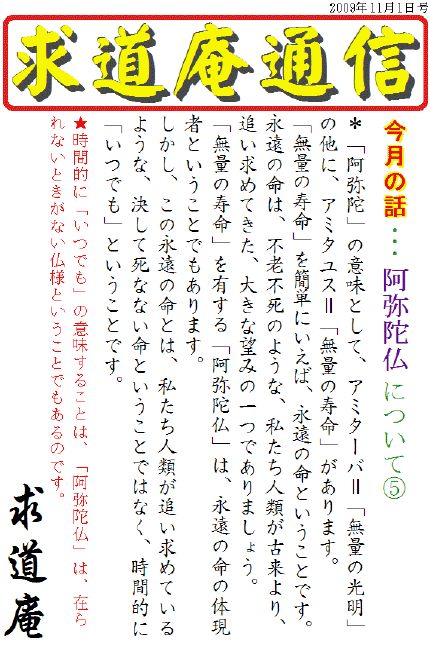 2009年11月1日号
求道庵通信
今月の話…阿弥陀仏について⑤
＊「阿弥陀」の意味として、アミターバ＝「無量の光明」
の他に、アミタユス＝「無量の寿命」があります。
「無量の寿命」を簡単にいえば、永遠の命ということです。
永遠の命は、不老不死のような、私たち人類が古来より、
追い求めてきた、大きな望みの一つでありましょう。
「無量の寿命」を有する「阿弥陀仏」は、永遠の命の体現
者ということでもあります。
しかし、この永遠の命とは、私たち人類が追い求めている
ような、決して死なない命ということではなく、時間的に
「いつでも」ということです。
★時間的に「いつでも」の意味することは、「阿弥陀仏」は、在ら
れないときがない仏様ということでもあるのです。
求道庵